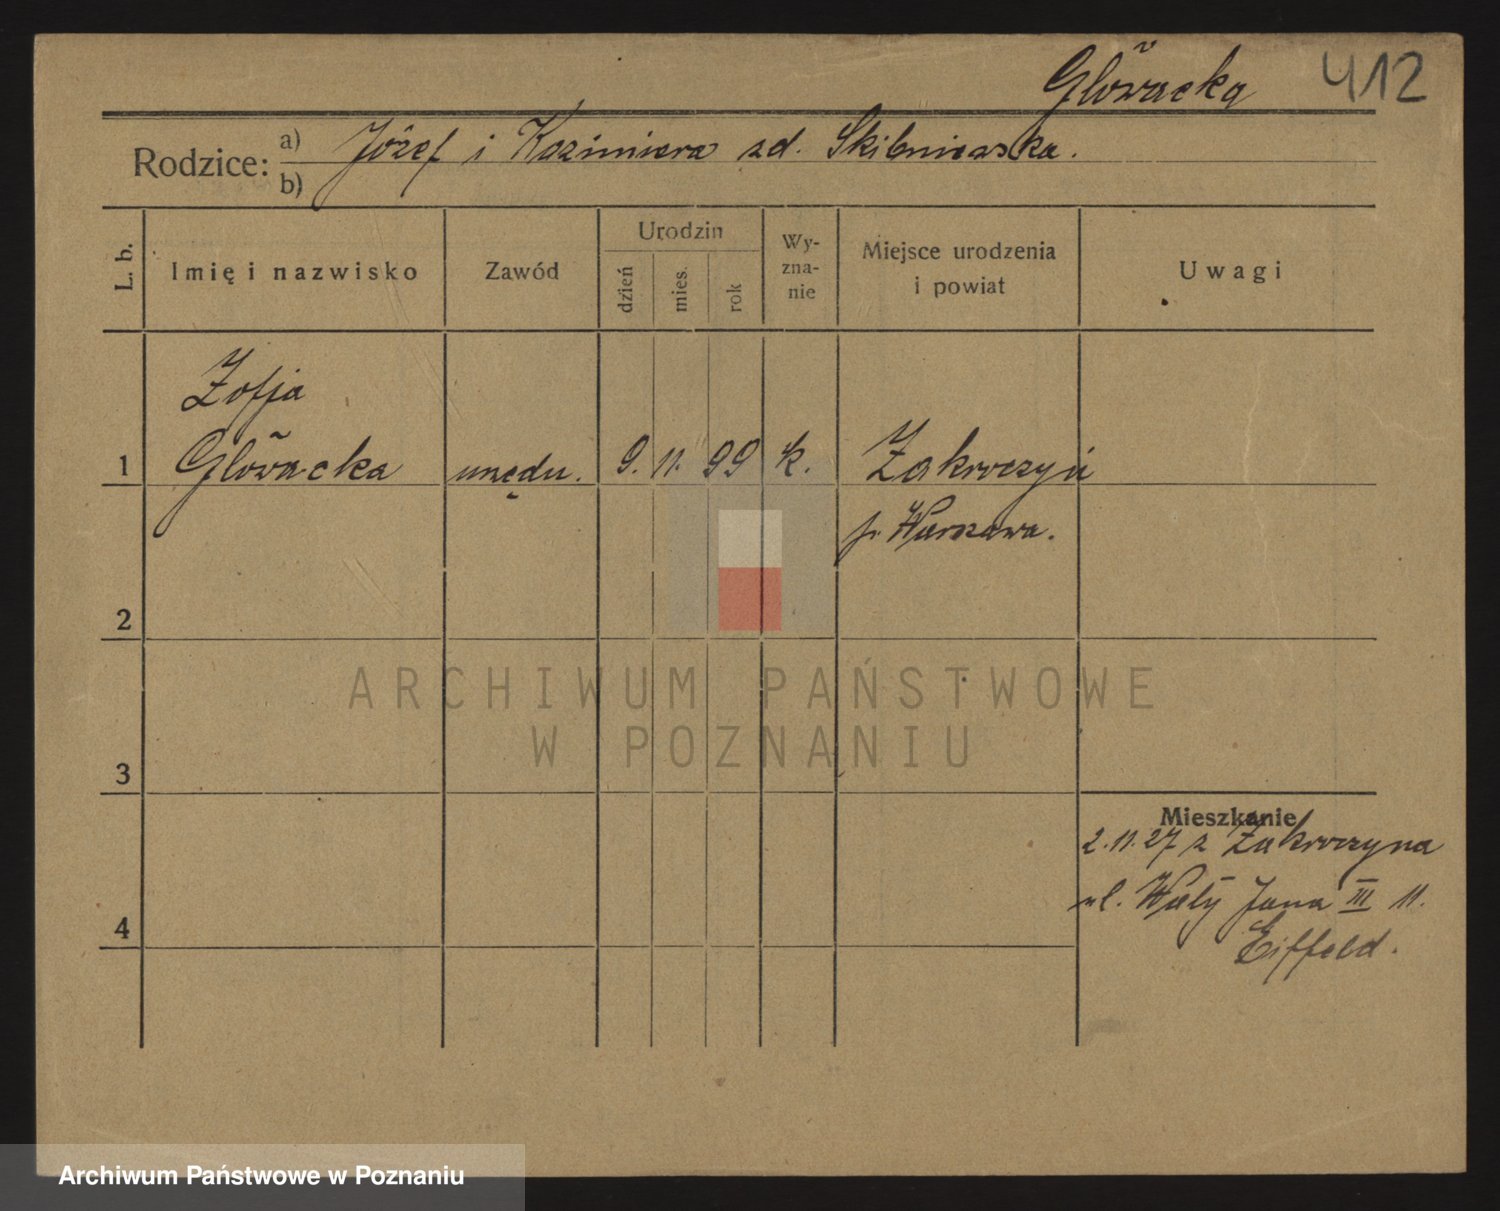 Głowacka 412
Rodzice: a) Józef i Kazimiera zd. Skibniewska.
b)
L. b.
Imię i nazwisko
Zawód
Urodzin
dzień
mies.
rok
Wy-
zna-
nie
Miejsce urodzenia
i powiat
Uwagi
Zofja
1 Głowacka urzędn. 9. 11. 99 k. Zakroczyń
p. Warszawa.
2
ARCHIWUM PAŃSTWOWE
W POZNANIU
3
Mieszkanie
2.11.27 z Zakroczyna
ul. Wały Jana III 11.
4
Eiffeld.
Archiwum Państwowe w Poznaniu